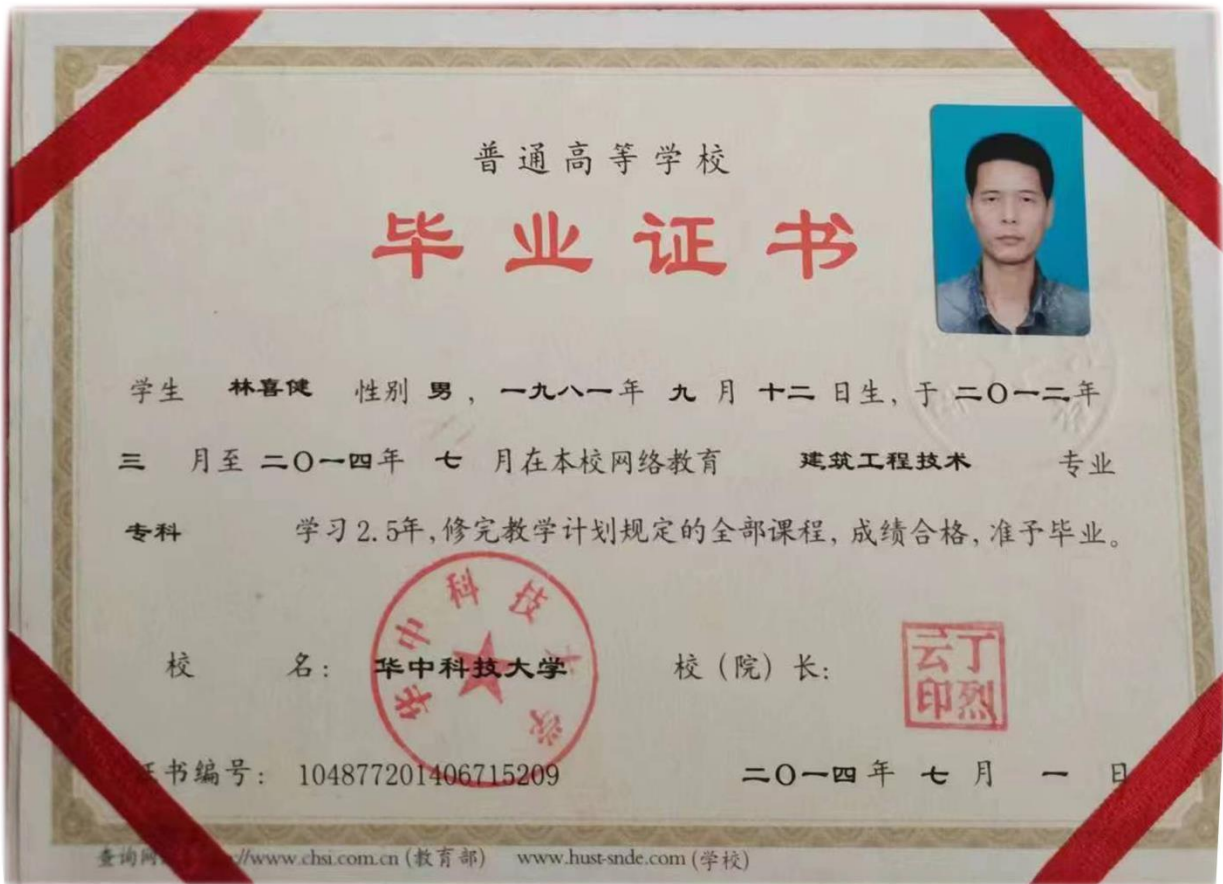 普通高等学校
毕业证书
学生 林喜健 性别 男，一九八一年 九 月 十二 日生，于 二〇一二年
三 月至 二〇一四年 七 月在本校网络教育 建筑工程技术 专业
专科 学习2.5年，修完教学计划规定的全部课程，成绩合格，准予毕业。
华中科技大学
校 名：华中科技大学 校（院）长：
丁烈云印
证书编号：104877201406715209 二〇一四年 七 月 一 日
查询网 //www.chsi.com.cn (教育部) www.hust-snde.com (学校)